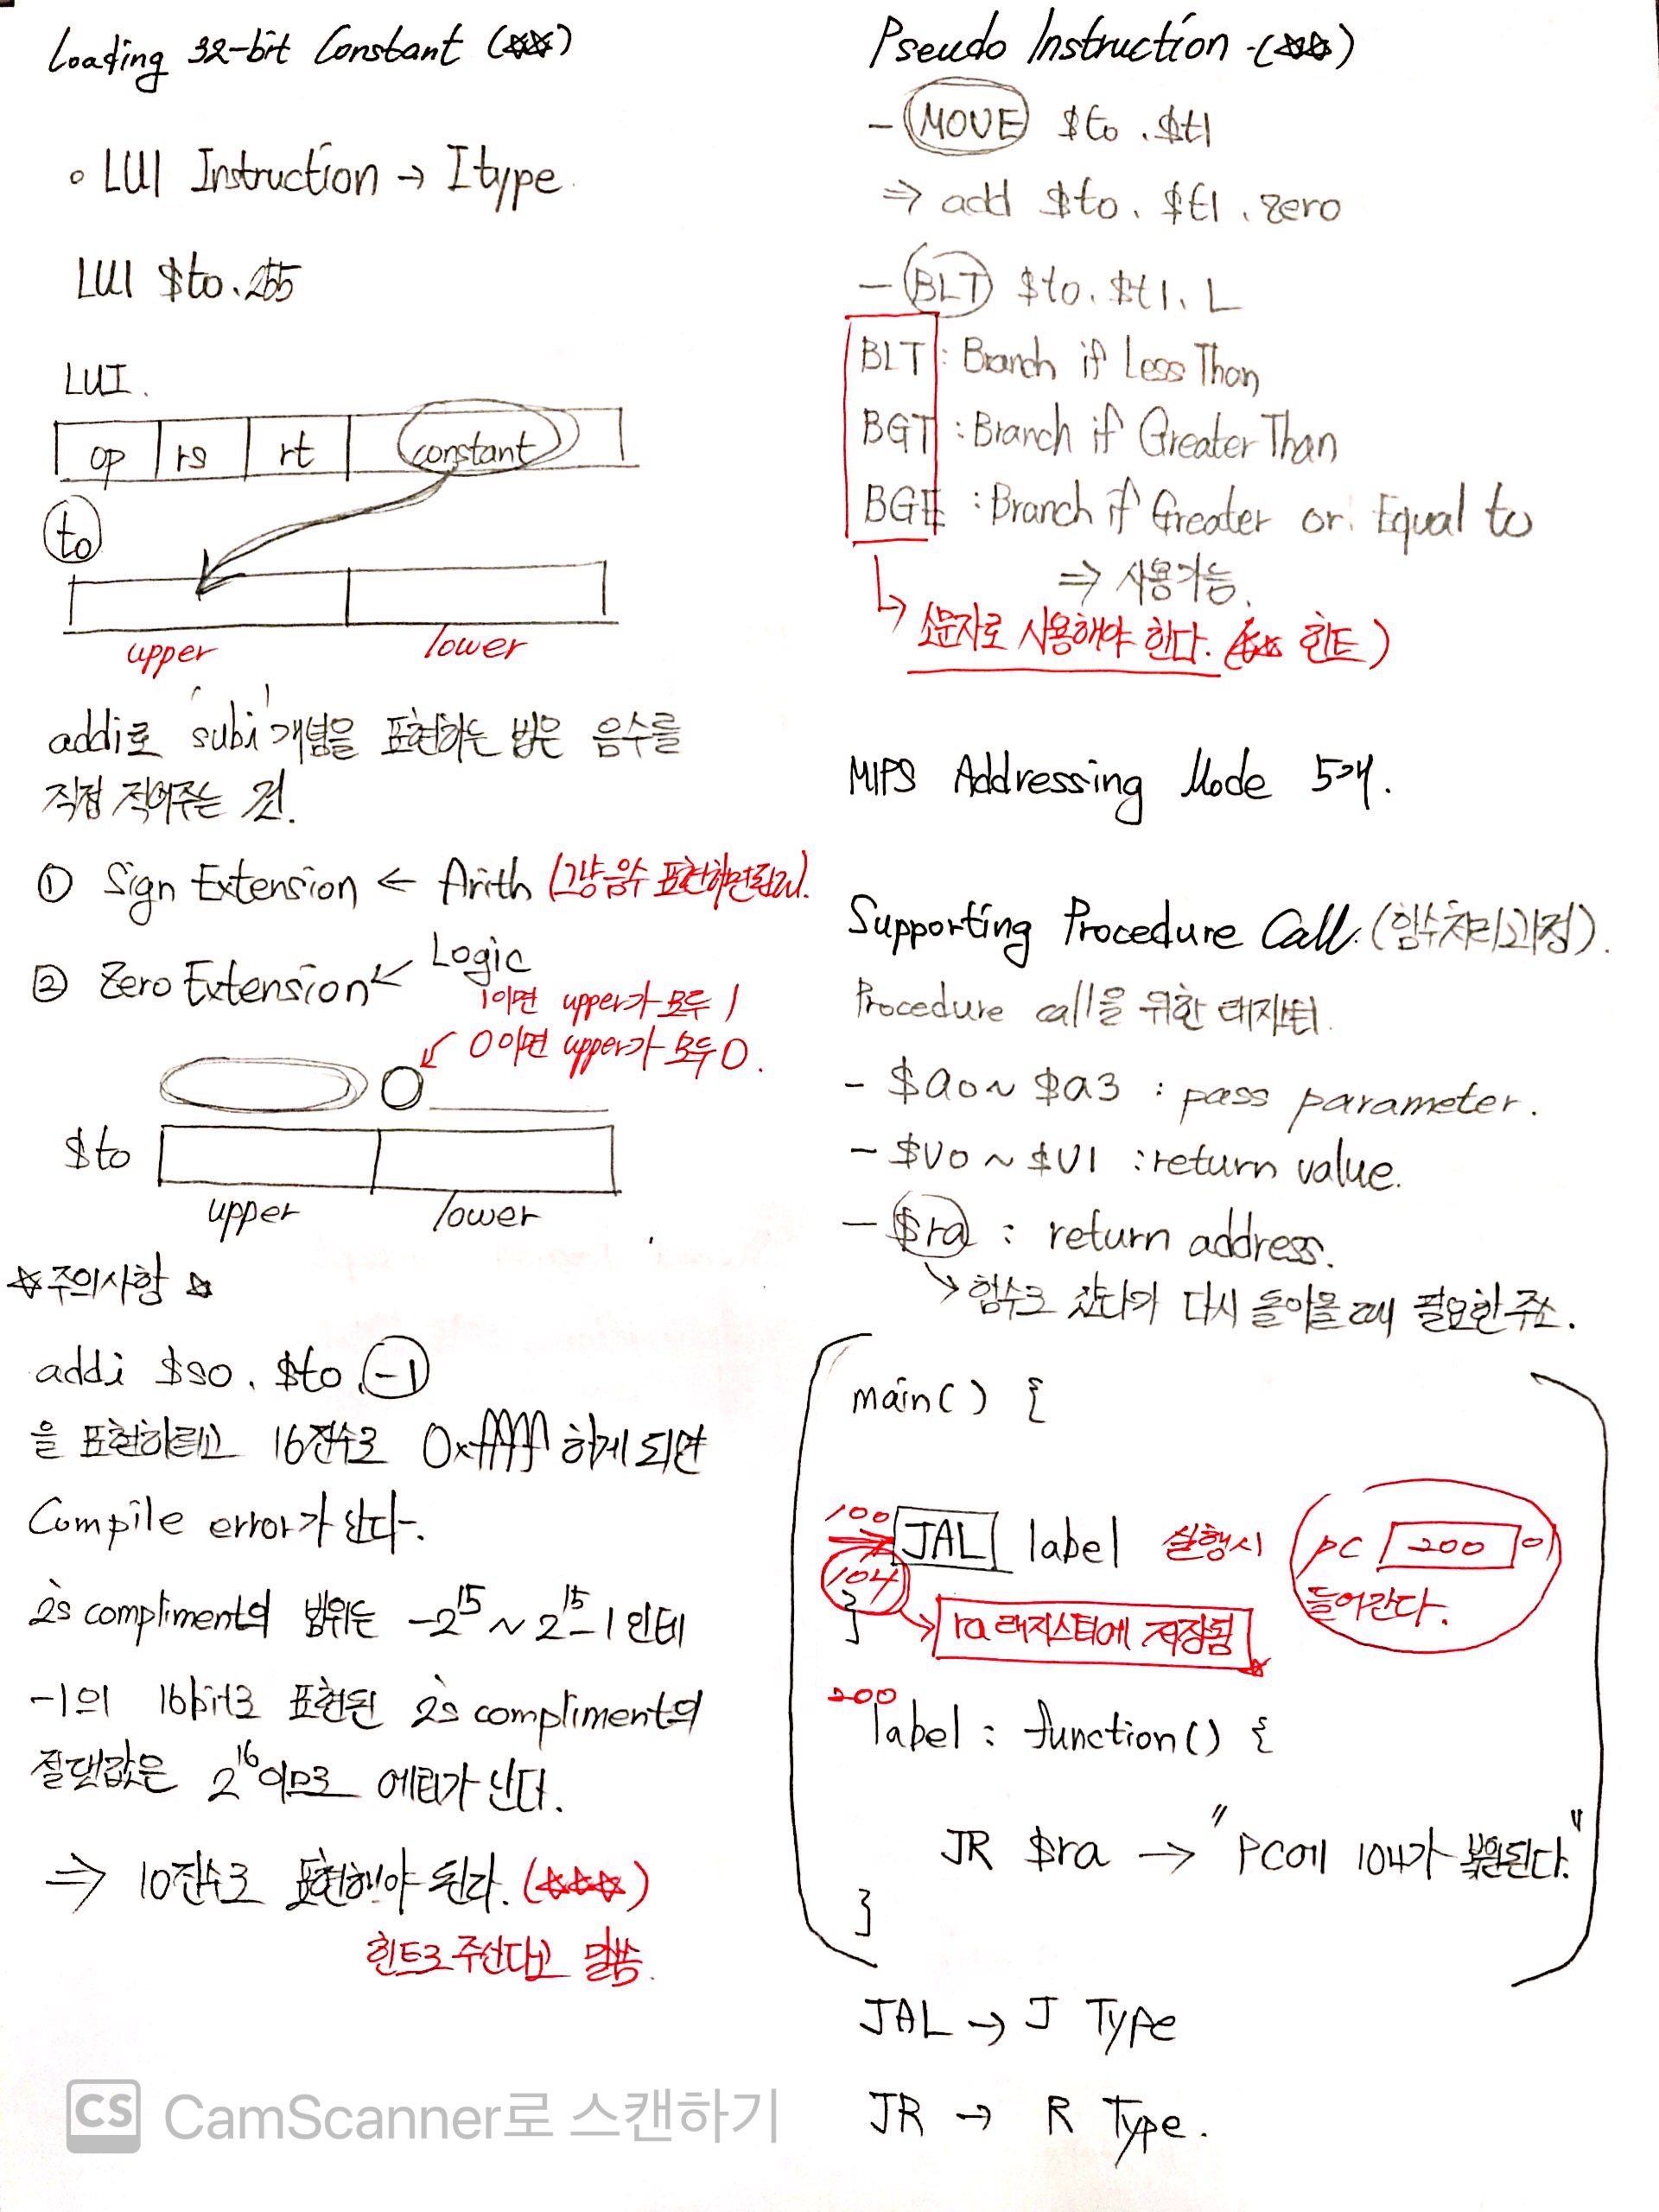 Loading 32-bit Constant (☆☆)
◦ LUI Instruction → I type.
LUI $t0, 255
LUI.
op rs rt constant
t0
upper lower
addi로 'subi' 개념을 표현하는 법은 음수를
직접 적어주는 것.
① Sign Extension ← Arith (그냥 음수 표현하면된다).
② Zero Extension ← Logic
1이면 upper가 모두 1
0이면 upper가 모두 0.
$t0
upper lower
☆주의사항☆
addi $s0, $t0, -1
을 표현하려고 16진수로 0xffff 하게 되면
Compile error가 난다.
2's compliment의 범위는 -2^15 ~ 2^15-1 인데
-1의 16bit로 표현된 2's compliment의
절댓값은 2^16이므로 에러가 난다.
⇒ 10진수로 표현해야 된다. (☆☆☆)
힌트로 주신다고 말씀.
Pseudo Instruction -(☆☆)
- MOVE $t0, $t1
⇒ add $t0, $t1, zero
- BLT $t0, $t1, L
BLT : Branch if Less Than
BGT : Branch if Greater Than
BGE : Branch if Greater or Equal to
⇒ 사용가능.
↳ 소문자로 사용해야 한다. (☆☆ 힌트)
MIPS Addressing Mode 5개.
Supporting Procedure Call. (함수처리과정).
Procedure call을 위한 래지스터.
- $a0 ~ $a3 : pass parameter.
- $v0 ~ $v1 : return value.
- $ra : return address.
↘ 함수로 갔다가 다시 돌아올 때 필요한 주소.
main() {
100 JAL label 실행시 PC 200 이
104 들어간다.
} → ra 래지스터에 저장됨
200
label : function() {
JR $ra → "PC에 104가 복원된다."
}
JAL → J Type
JR → R Type.
CS CamScanner로 스캔하기